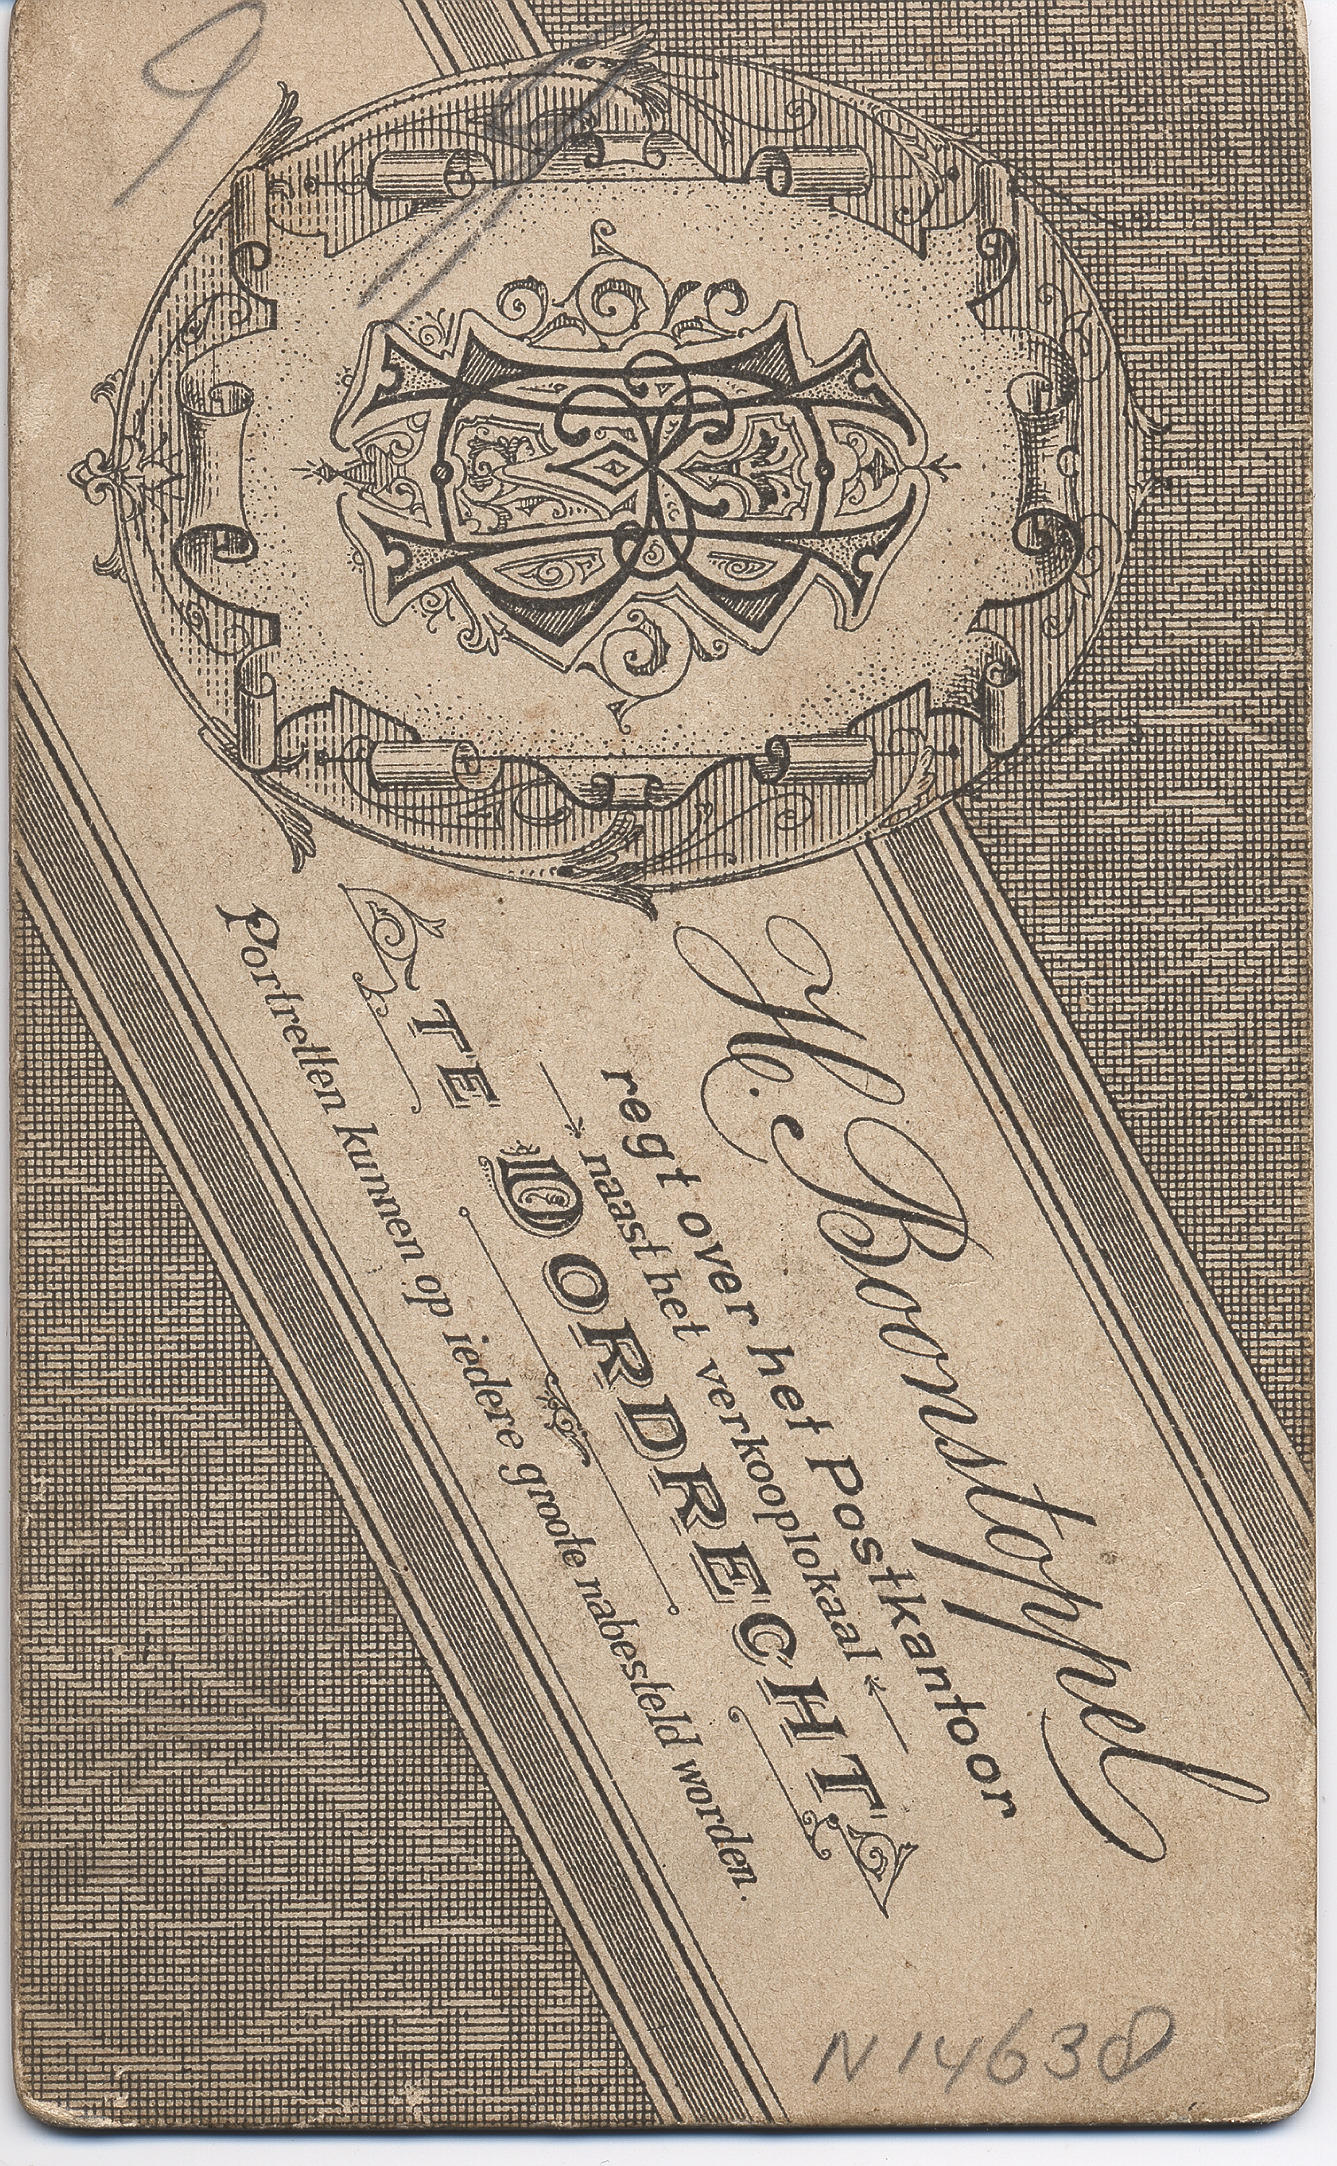 H. Boonstoppel
regt over het Postkantoor
naast het verkooplokaal
TE DORDRECHT
Portretten kunnen op iedere groote nabesteld worden.
N 14638
9
9